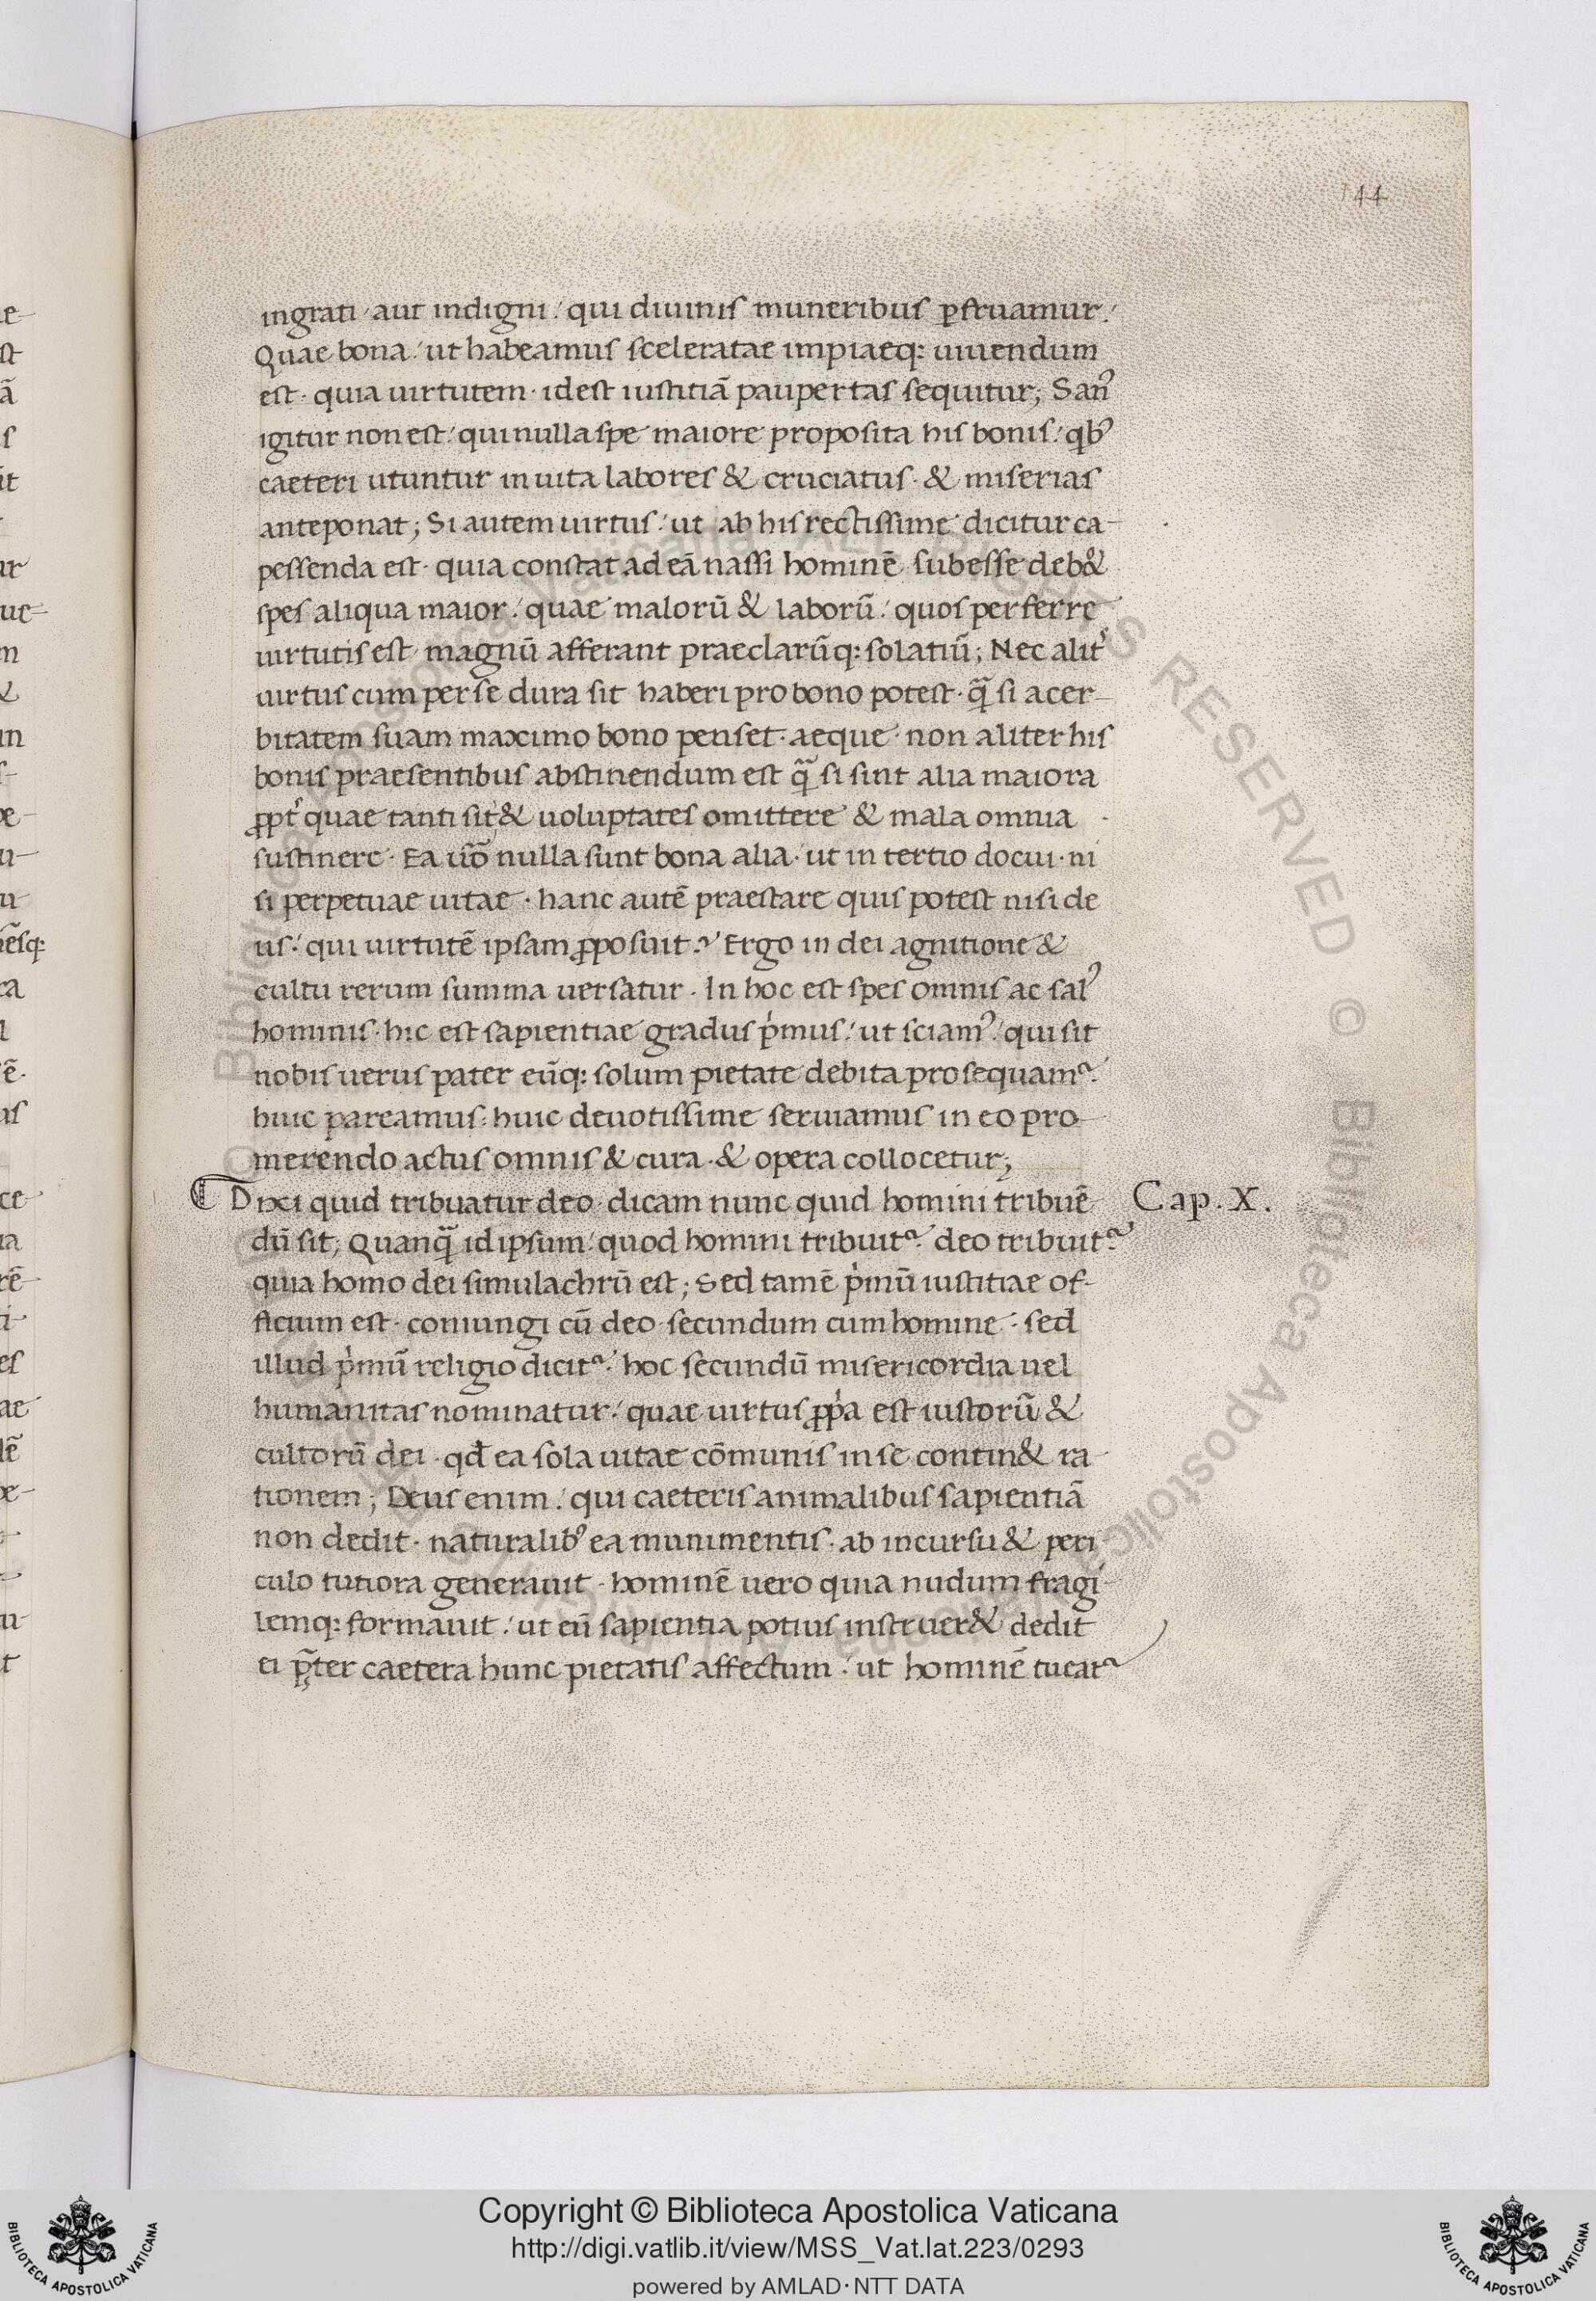 144
ingrati / aut indigni / qui diuinis muneribus ꝑfruamur /
Quae bona / ut habeamus sceleratae impiaeq: uiuendum
est · quia uirtutem · idest iustitiã paupertas sequitur; Sanꝰ
igitur non est / qui nulla spe maiore proposita his bonis / qbꝰ
caeteri utuntur in uita labores & cruciatus · & miserias
anteponat; Si autem uirtus / ut ab his rectissime dicitur ca-
pessenda est · quia constat ad eã nassi hominẽ subesse deb&
spes aliqua maior / quae malorũ & laborũ / quos perferre
uirtutis est magnũ afferant praeclarũq: solatiũ; Nec alit᾽
uirtus cum per se dura sit haberi pro bono potest · q̃ si acer-
bitatem suam maximo bono penset · aeque non aliter his
bonis praesentibus abstinendum est q̃ si sint alia maiora
ꝓpt᾽ quae tanti sit & uoluptates omittere & mala omnia
sustinere · Ea uõ nulla sunt bona alia · ut in tertio docui · ni
si perpetuae uitae · hanc autẽ praestare quis potest nisi de
us / qui uirtutẽ ipsam ꝓposuit ? Ergo in dei agnitione &
cultu rerum summa uersatur · In hoc est spes omnis ac salꝰ
hominis · hic est sapientiae gradus p᾽mus / ut sciamꝰ / qui sit
nobis uerus pater eũq: solum pietate debita prosequamᷣ
huic pareamus : huic deuotissime seruiamus in eo pro-
merendo actus omnis & cura · & opera collocetur;
Dixi quid tribuatur deo · dicam nunc quid homini tribuẽ
Cap. X.
dũ sit; Quanq̃ id ipsum / quod homini tribuitᷣ / deo tribuitᷣ
quia homo dei simulachrũ est; Sed tamẽ p᾽mũ iustitiae of-
ficium est · coniungi cũ deo secundum cum homine : sed
illud p᾽mũ religio dicitᷣ / hoc secundũ misericordia uel
humanitas nominatur / quae uirtus ꝓp᾽a est iustorũ &
cultorũ dei · qđ ea sola uitae cõmunis in se contin& ra-
tionem; Deus enim / qui caeteris animalibus sapientiã
non dedit · naturalibꝰ ea munimentis · ab incursu & peri
culo tutiora generauit · hominẽ uero quia nudum fragi-
lemq: formauit / ut eũ sapientia potius instruer& dedit
ei p̃ter caetera hunc pietatis affectum · ut hominẽ tueatᷣ
Copyright © Biblioteca Apostolica Vaticana
http://digi.vatlib.it/view/MSS_Vat.lat.223/0293
powered by AMLAD·NTT DATA